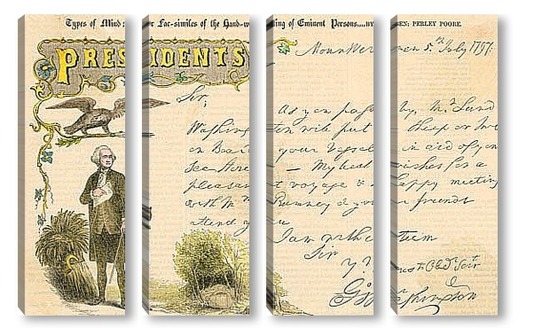 Types of Mind: or Fac-similes of the Hand-writing of Eminent Persons....BY BEN: PERLEY POORE.
PRESIDENTS
Mount Vernon 5th July 1797.
Sir,
As you pass by, Mr Lund
Washington will put a Sheep or two
on Board your Vessel in aid of your
Sea Stores — My best wishes for a
pleasant voyage & happy meeting
with Mrs & your friends
attend you
I am with esteem
Sir
Yr Most Obedt Servt
Go Washington